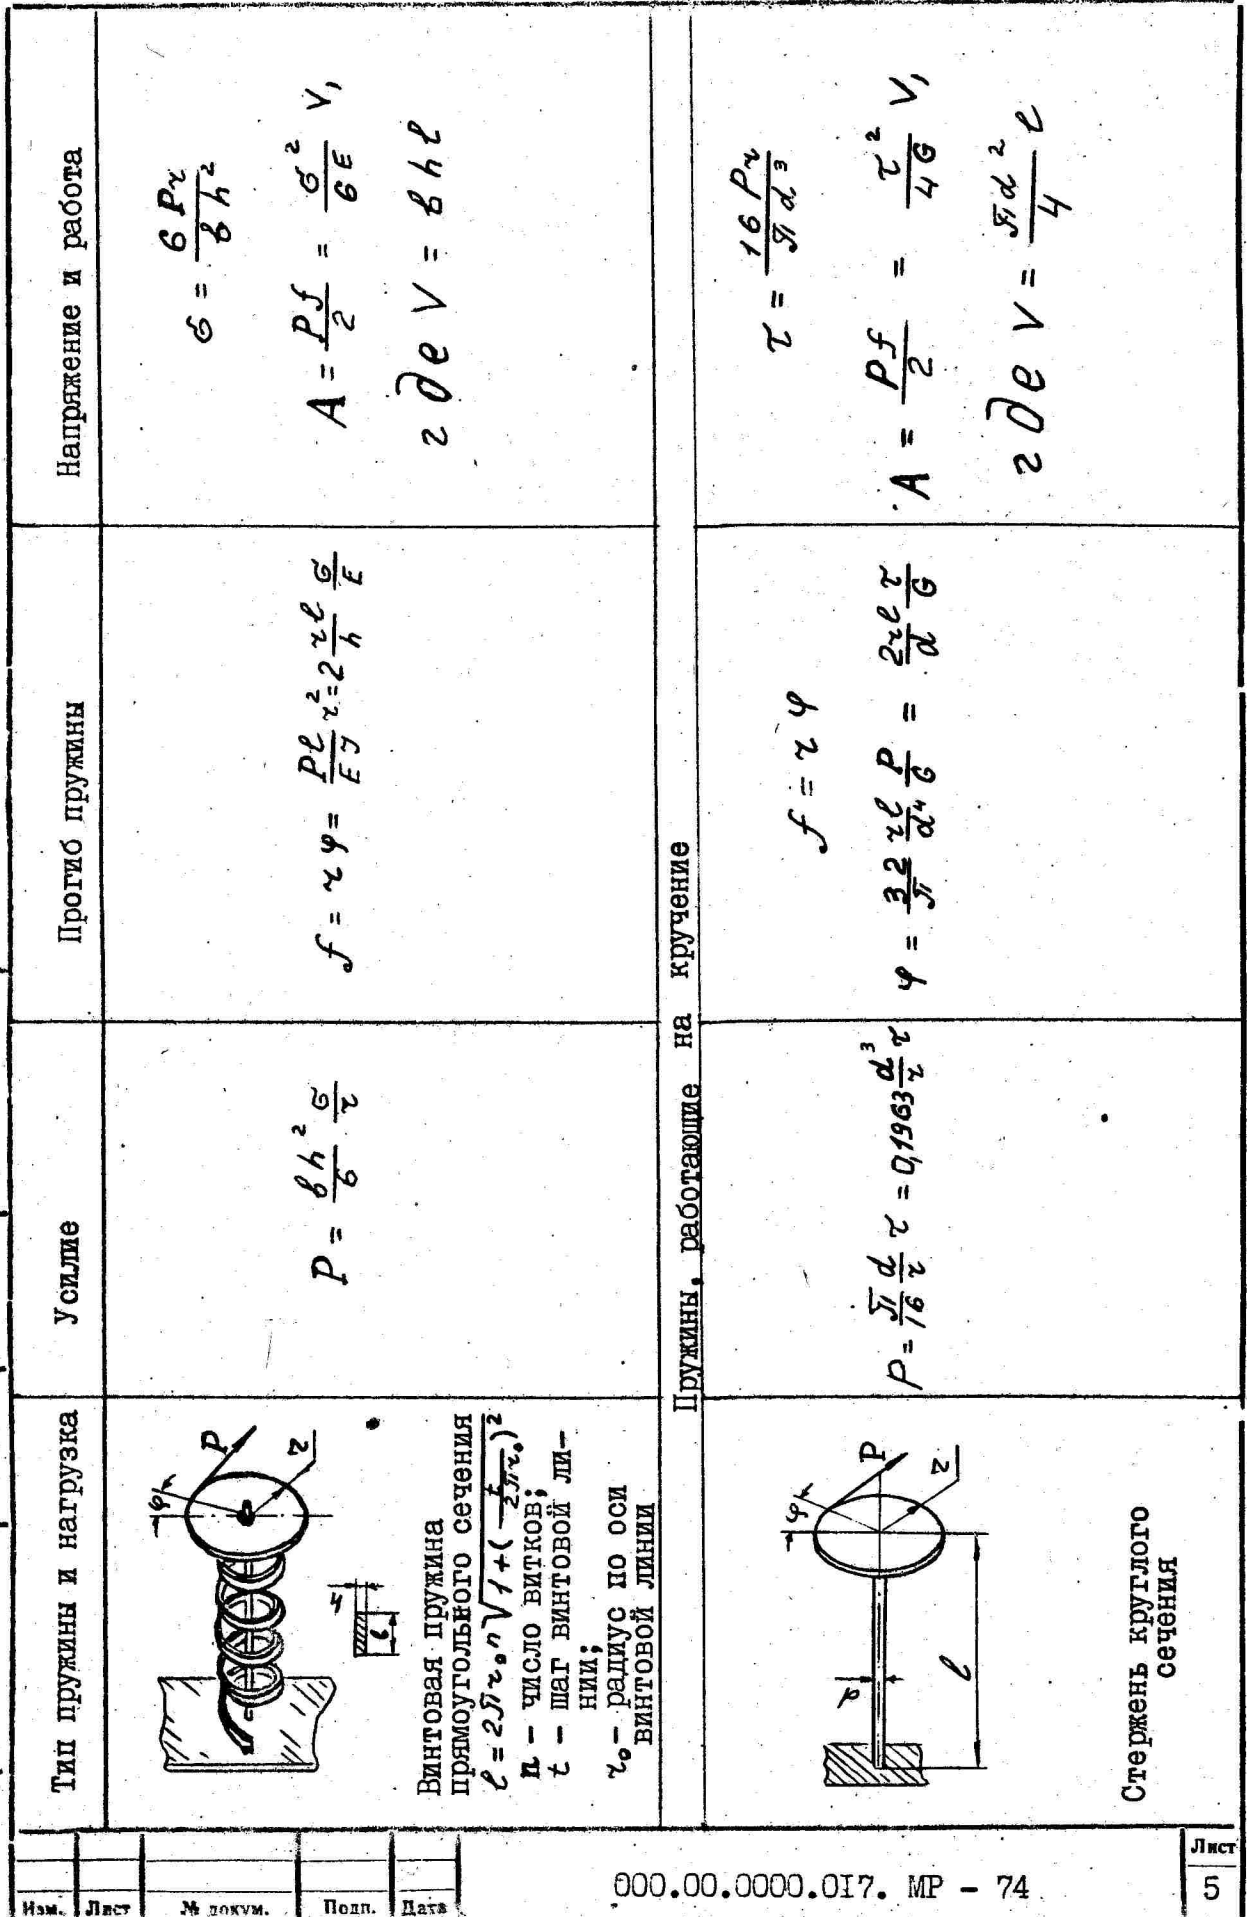 Тип пружины и нагрузка
Усилие
Прогиб пружины
Напряжение и работа
φ
P
r
h
b
Винтовая пружина
прямоугольного сечения
l = 2πr₀n√(1+(t/2πr₀)²)
n – число витков;
t – шаг винтовой ли-
нии;
r₀ – радиус по оси
винтовой линии
P = bh²/6 σ/r
f = rφ = Pl/EJ r² = 2 rl/h σ/E
σ = 6Pr/bh²
A = Pf/2 = σ²/6E V,
где V = bhl
Пружины, работающие на кручение
φ
P
r
d
l
Стержень круглого
сечения
P = π/16 d/r τ = 0,1963 d³/r τ
f = rφ
φ = 32/π rl/d⁴ P/G = 2rl/d τ/G
τ = 16Pr/πd³
A = Pf/2 = τ²/4G V,
где V = πd²/4 l
Изм. Лист № докум. Подп. Дата
000.00.0000.0I7. МР – 74
Лист
5